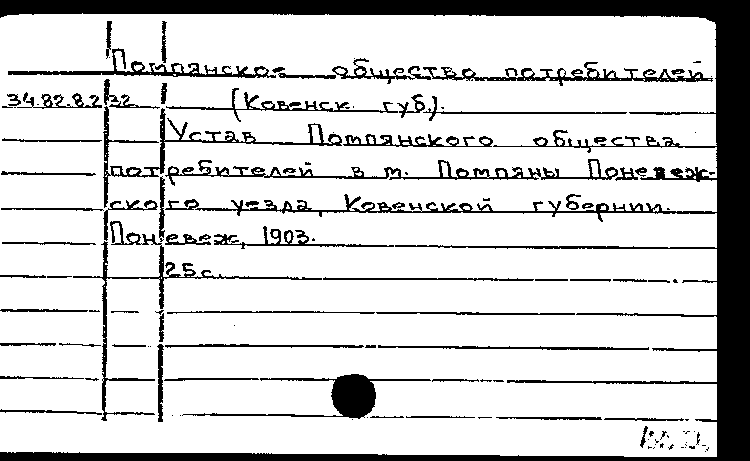 Помпянское общество потребителей
34.82.8.2/32 (Ковенск. губ.).
Устав Помпянского общества
потребителей в м. Помпяны Поневеж-
ского уезда, Ковенской губернии.
Поневеж, 1903.
25 с.